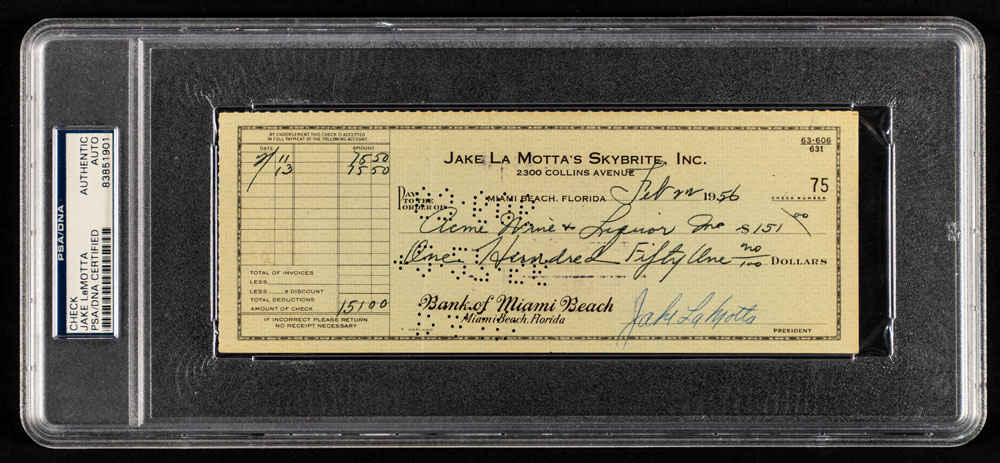 PSA/DNA
CHECK
JAKE LaMOTTA
PSA/DNA CERTIFIED
AUTHENTIC
AUTO
83851901
BY ENDORSEMENT THIS CHECK IS ACCEPTED
IN FULL PAYMENT OF THE FOLLOWING ACCOUNT
DATE AMOUNT
2/11 75 50
13 75 50
TOTAL OF INVOICES
LESS
LESS % DISCOUNT
TOTAL DEDUCTIONS
AMOUNT OF CHECK 151 00
IF INCORRECT PLEASE RETURN
NO RECEIPT NECESSARY
JAKE LA MOTTA'S SKYBRITE, INC.
2300 COLLINS AVENUE
63-606
631
MIAMI BEACH, FLORIDA Feb 1956
75
CHECK NUMBER
PAY
TO THE
ORDER OF
Acme Wine & Liquor Inc $151 00
One Hundred Fifty One no/100 DOLLARS
Bank of Miami Beach
Miami Beach, Florida
Jake La Motta
PRESIDENT